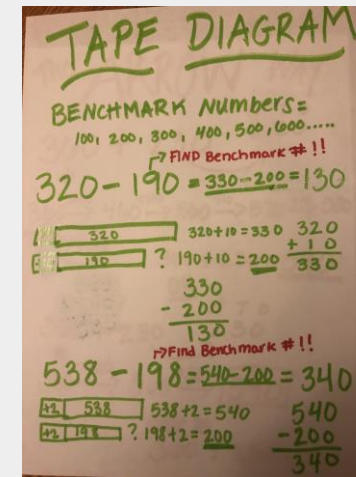 TAPE DIAGRAM
BENCHMARK Numbers=
100, 200, 300, 400, 500, 600.....
FIND Benchmark #!!
320-190 = 330-200 = 130
320 320+10=330 320
190 ? 190+10=200 +10
330
330
-200
130
Find Benchmark #!!
538-198=540-200=340
+2 538 538+2=540 540
+2 198 ? 198+2=200 -200
340